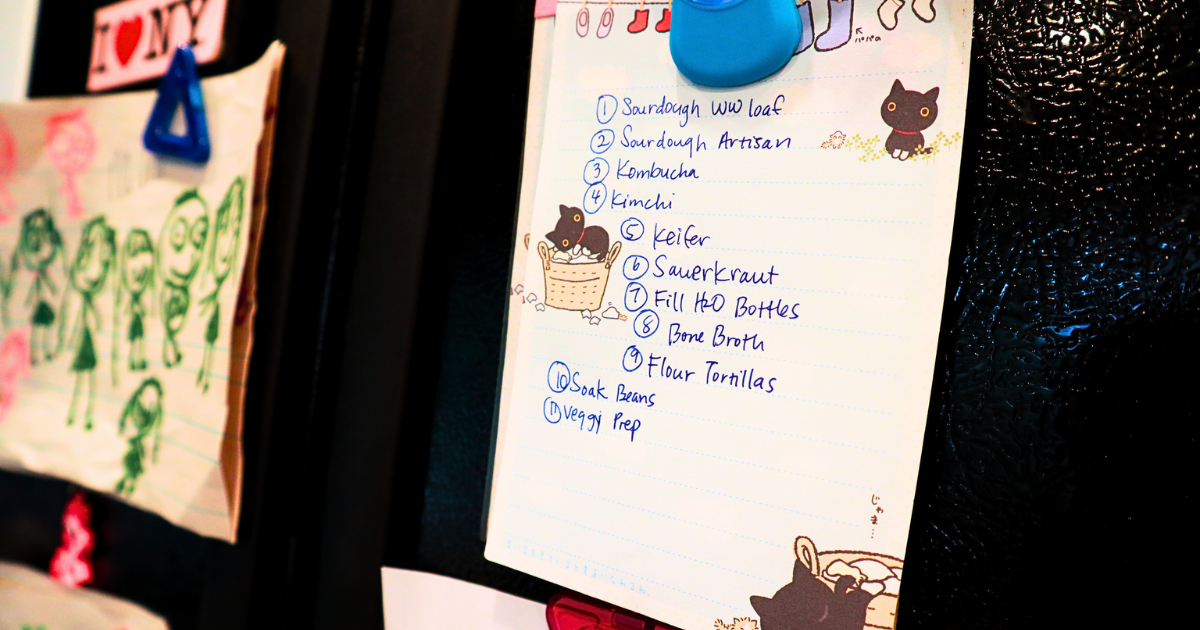 I ♥ NY
パパの
① Sourdough WW loaf
② Sourdough Artisan
③ Kombucha
④ Kimchi
⑤ Keifer
⑥ Sauerkraut
⑦ Fill H2O Bottles
⑧ Bone Broth
⑨ Flour Tortillas
⑩ Soak Beans
⑪ Veggy Prep
じゃま…